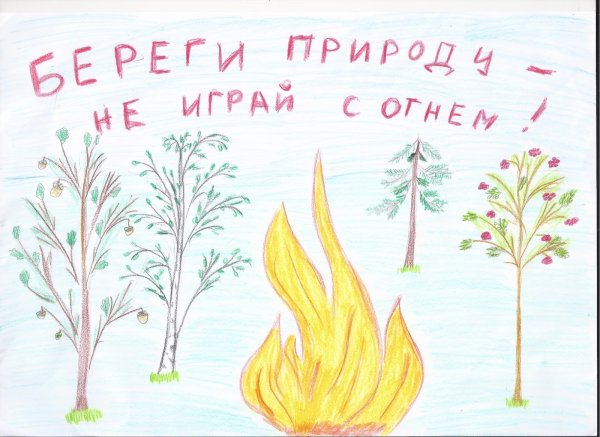 БЕРЕГИ ПРИРОДУ -
НЕ ИГРАЙ С ОГНЕМ!